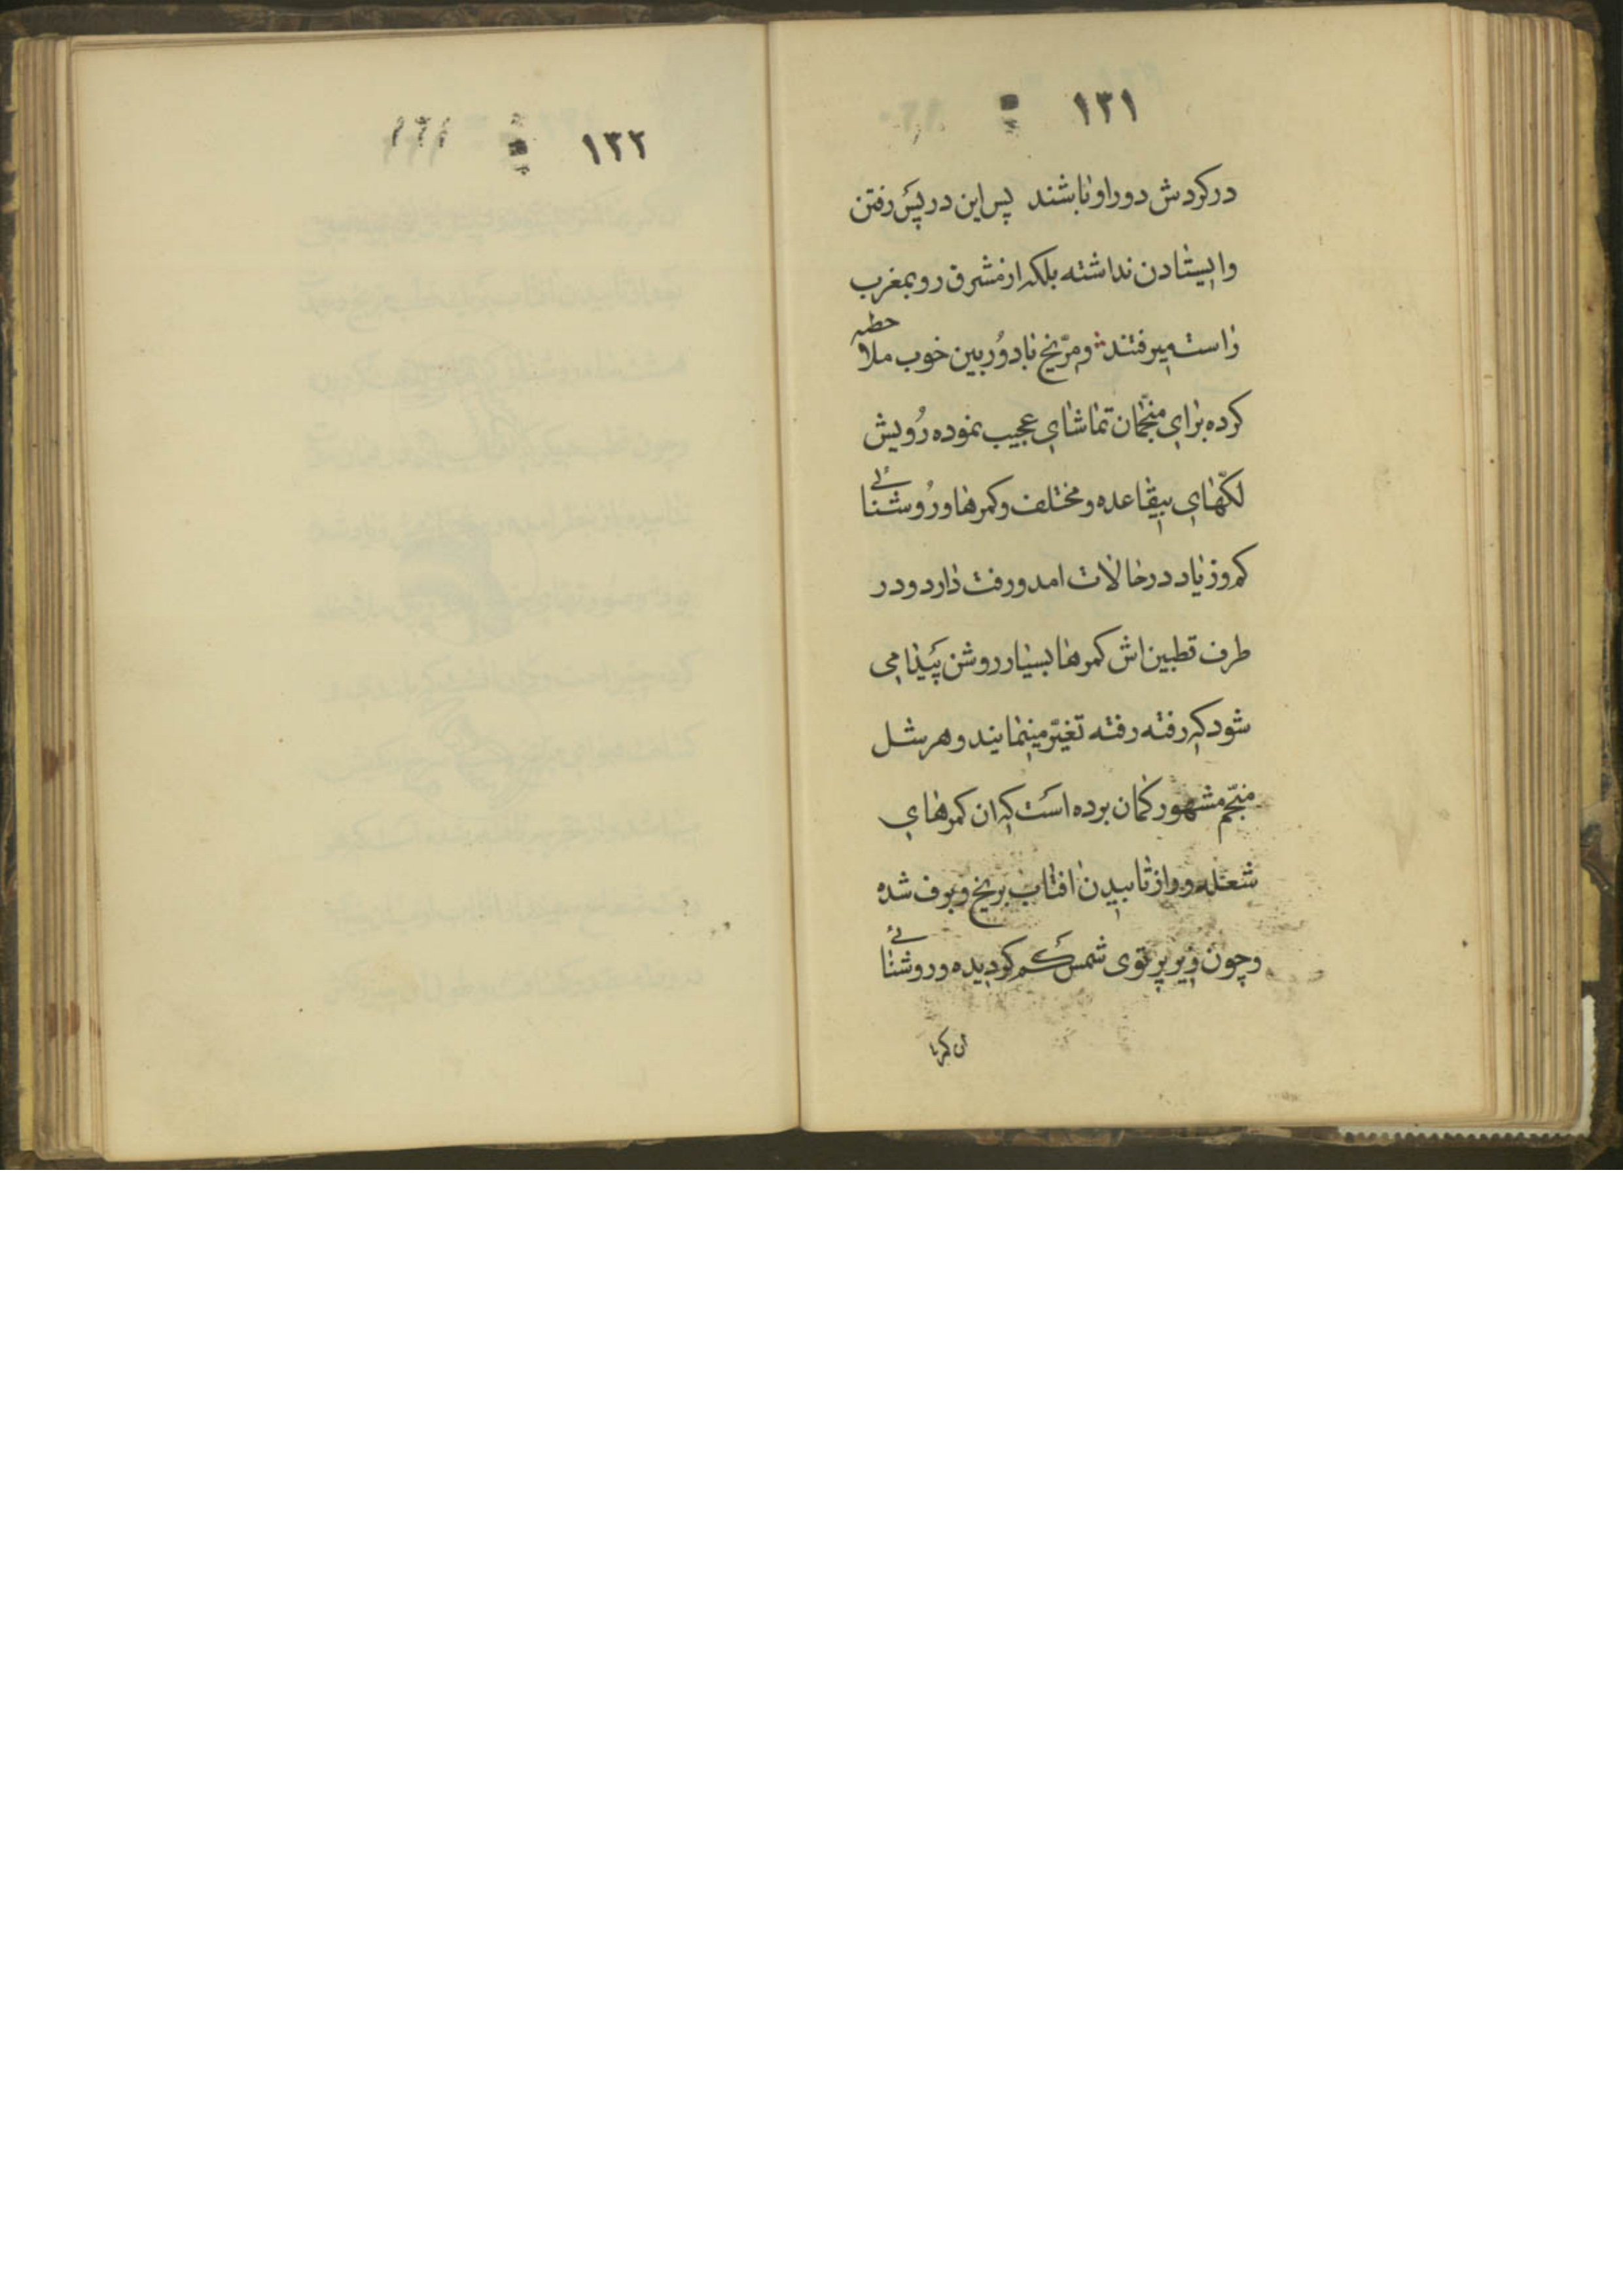 ١٣١
در کردش دور او با شند پس این در پس رفتن
وایستادن نداشته بلکه از مشرق رو بمغرب
راست میرفتند و مرّیخ با دوُربین خوب ملاحظه
کرده برای منجّمان تماشای عجیب نموده رُویش
لکّهای بیقاعده و مختلف و کمرها و رُوشنائی
کم و زیاد در حالات امد و رفت دارد و در
طرف قطبین اش کمرها بسیار روشن پیدا می
شود که رفته رفته تغیّر مینمایند و هرشل
منجّم مشهور کمان برده است که ان کمرهای
شعله ور از تابیدن افتاب بریخ و برف شده
و چون زیر پرتوی شمس کم کردیده و روشنائی
ان کمرها
١٣٢